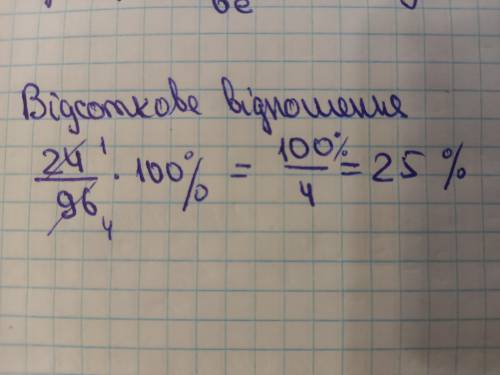 Відсоткове відношення
24/96 · 100% = 100%/4 = 25 %